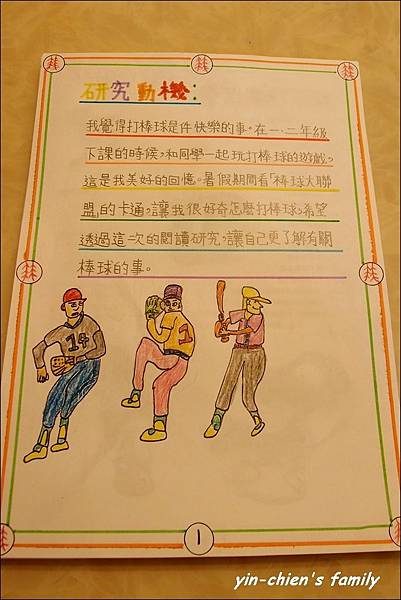 研究動機：
我覺得打棒球是件快樂的事。在一、二年級
下課的時候，和同學一起玩打棒球的遊戲，
這是我美好的回憶。暑假期間看「棒球大聯
盟」的卡通，讓我很好奇怎麼打棒球，希望
透過這一次的閱讀研究，讓自己更了解有關
棒球的事。
14
1
1
yin-chien's family